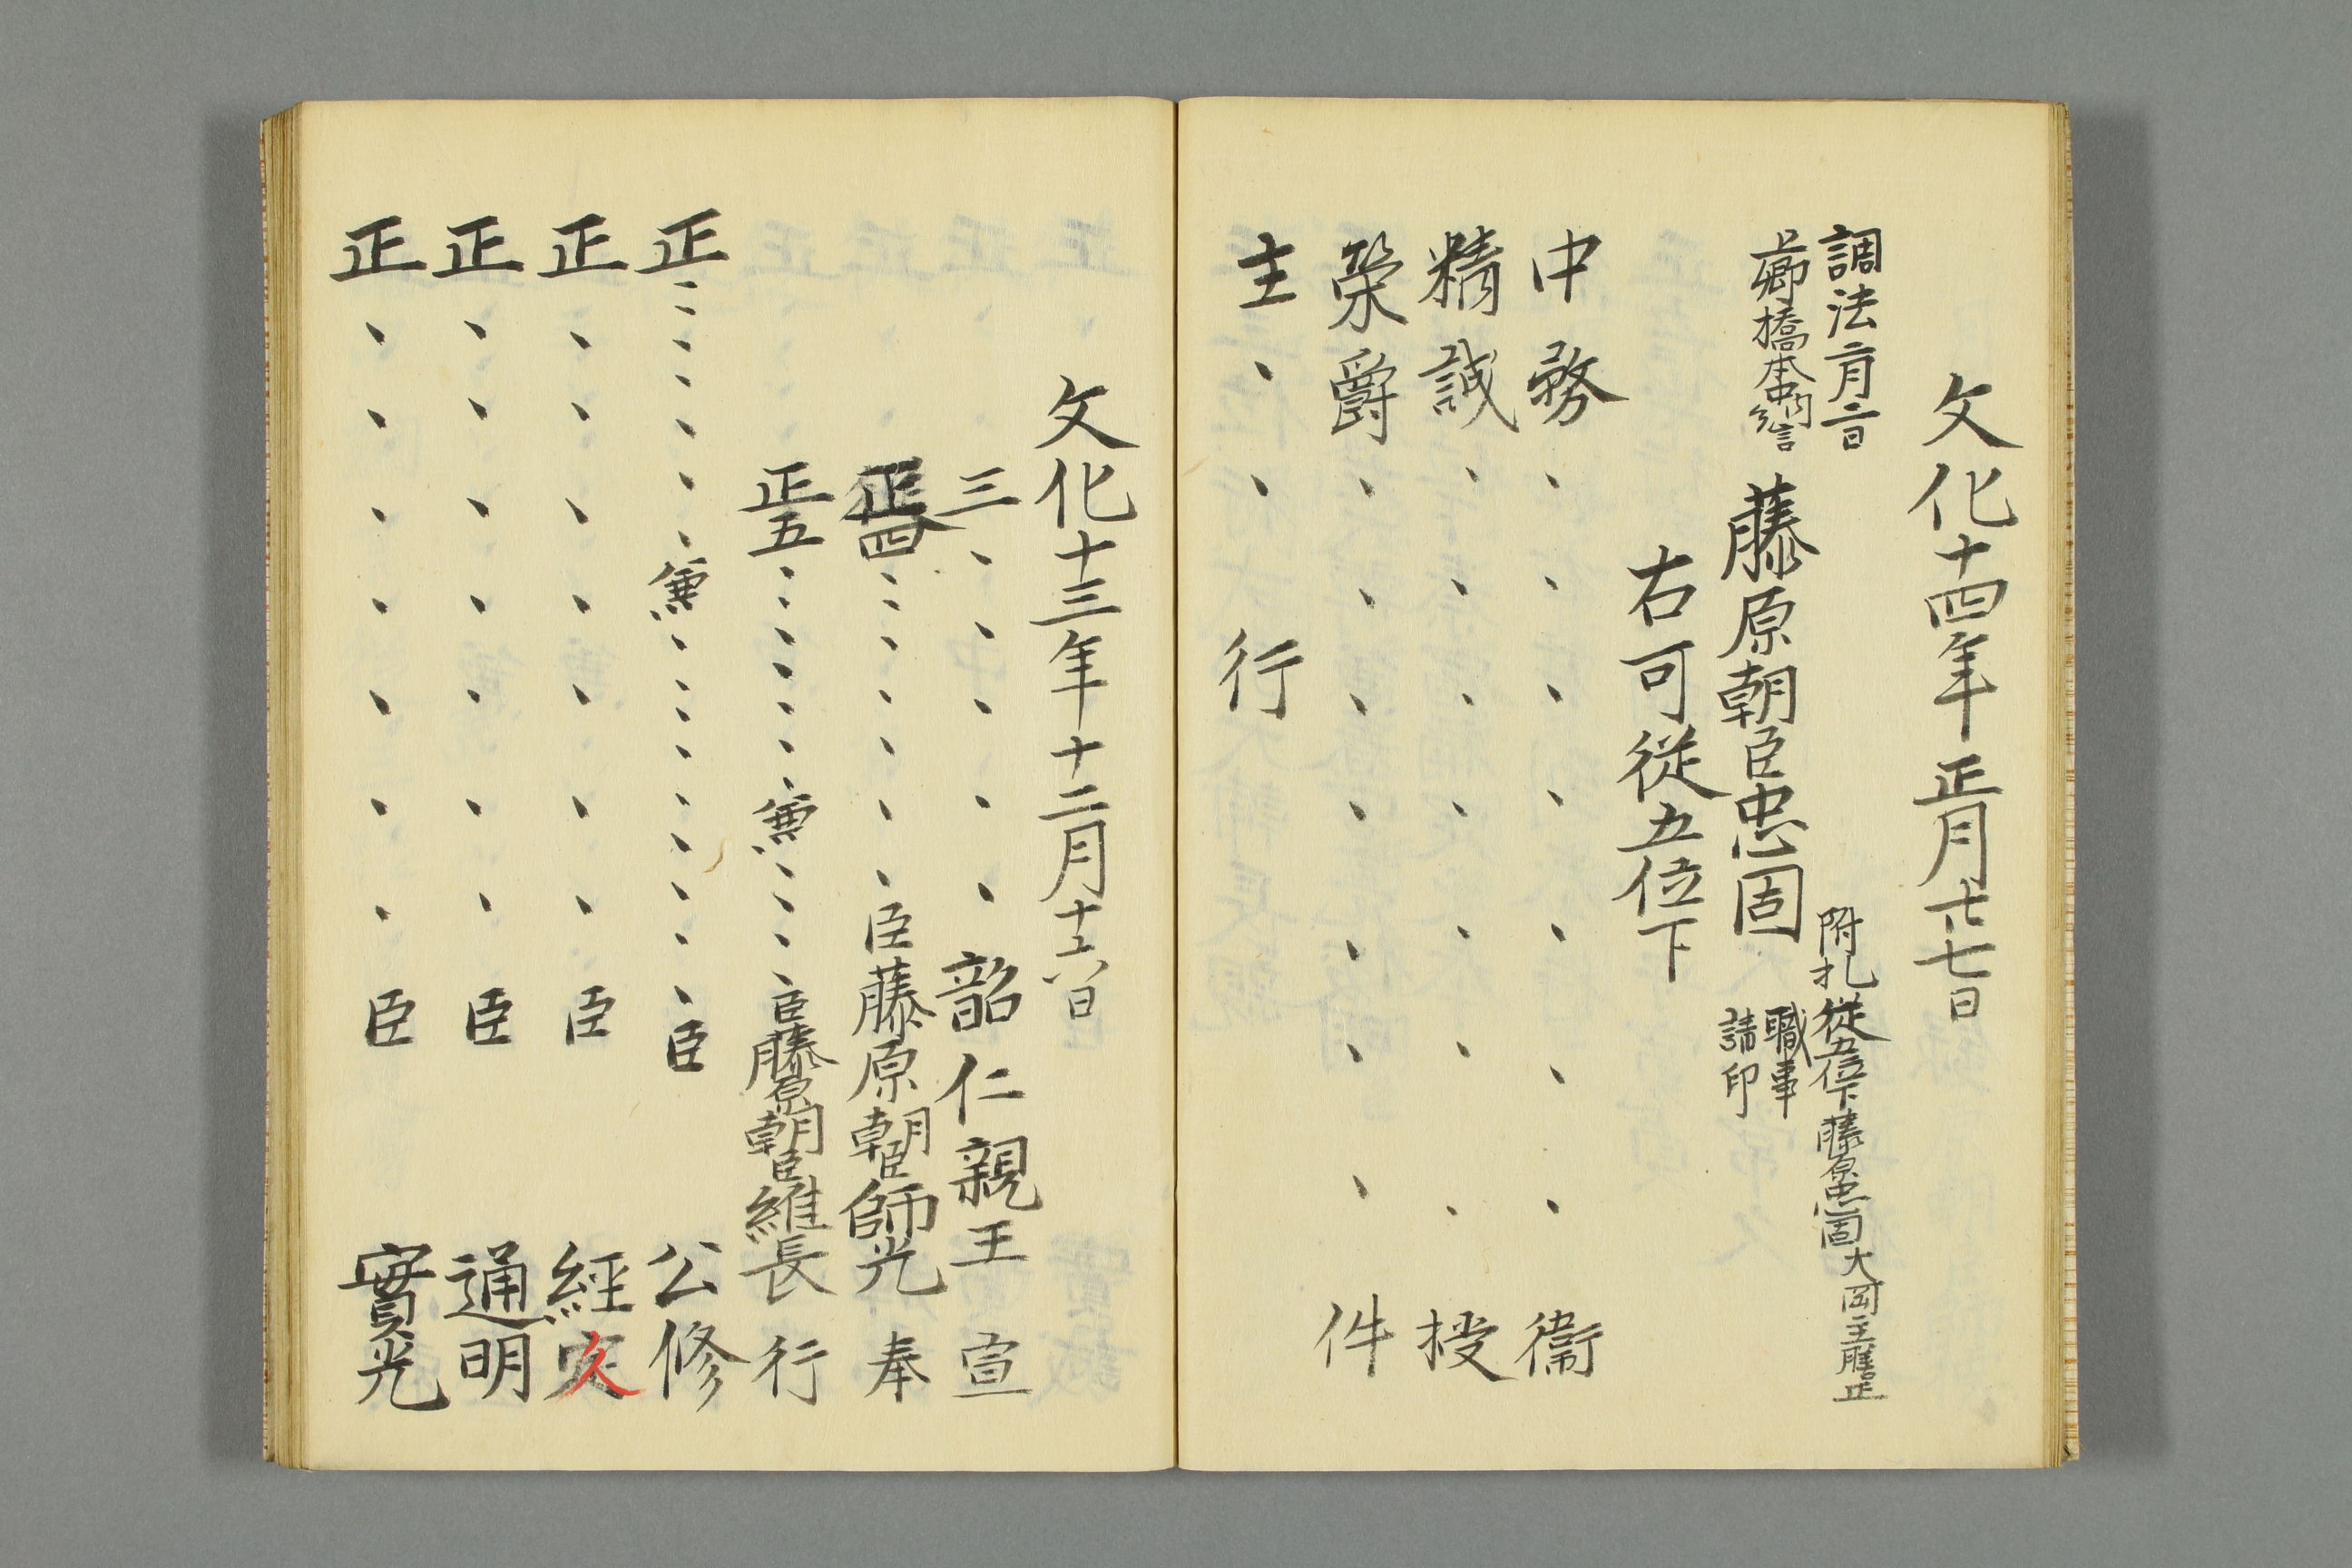 文化十四年正月廿七日
調法二月二日
上卿橋本中納言
附札従五位下藤原忠固大岡主膳正
藤原朝臣忠固
職事
請印
右可従五位下
中務、、、、、、、、衞
精誠、、、、、、、授
榮爵、、、、、、、件
主、、行
文化十三年十二月十六日
三、、、、、韶仁親王宣
正四、、、、、、臣藤原朝臣師光奉
正五、、、、、、、兼、、、、臣藤原朝臣維長行
正、、、、、、兼、、、、、、、、臣公修
正、、、、、、、臣經久
正、、、、、、、臣通明
正、、、、、、、臣實光